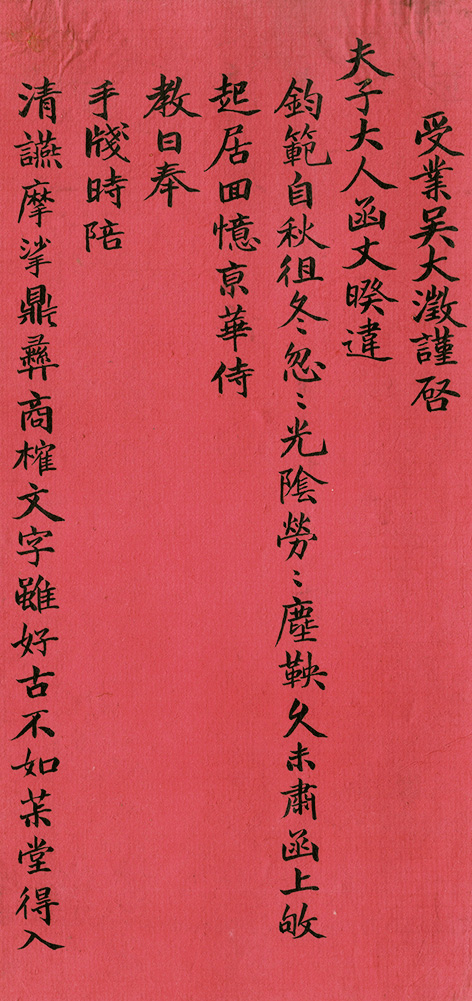 受業吴大澂謹啓
夫子大人函丈暌違
鈞範自秋徂冬忽〻光陰勞〻塵鞅久未肅函上敂
起居回憶京華侍
教日奉
手牋時陪
清讌摩挲鼎彝商榷文字雖好古不如芾堂得入